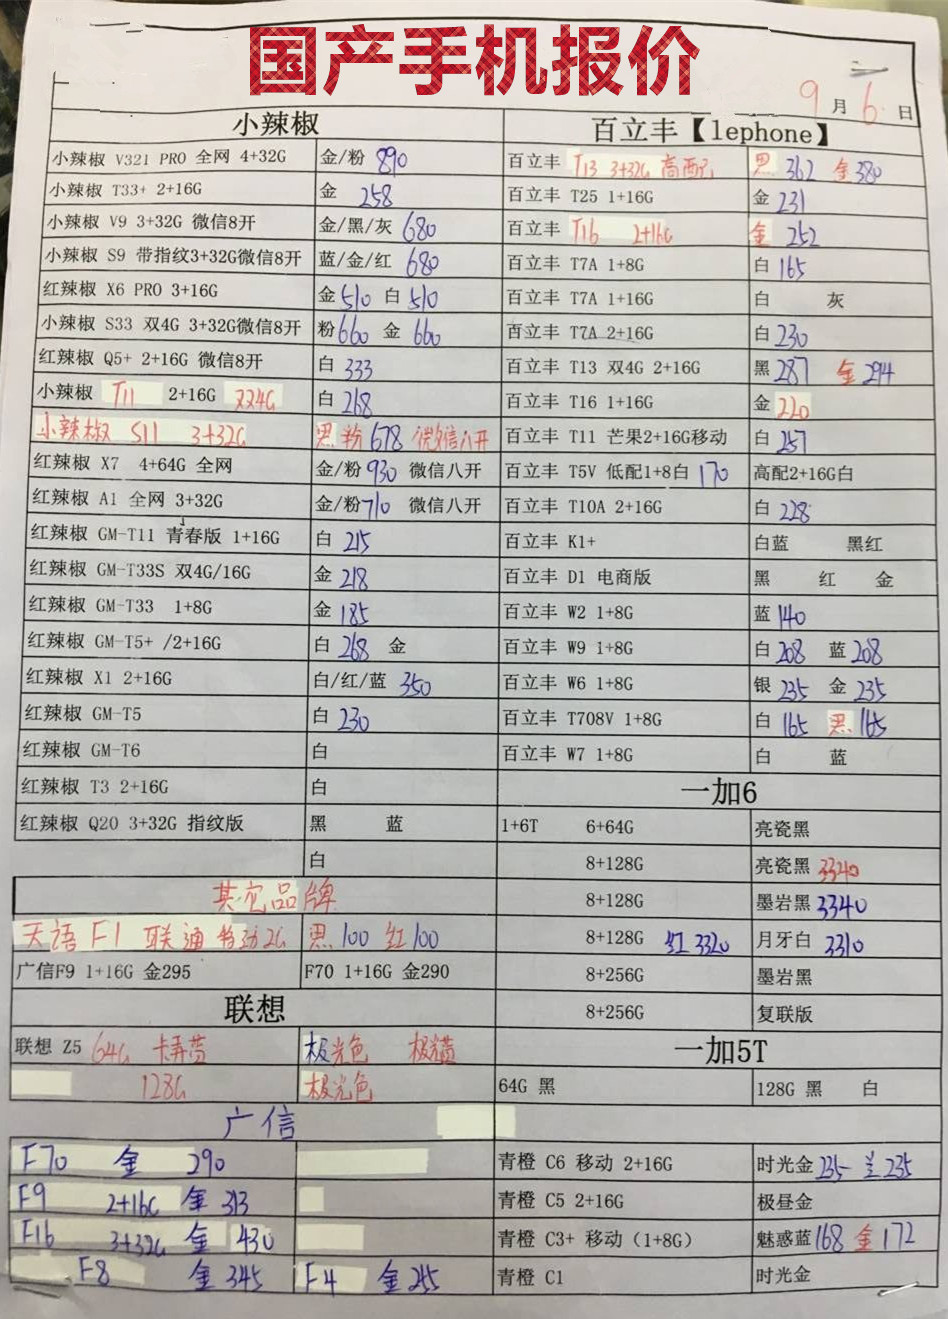 国产手机报价
9月6日
小辣椒
小辣椒 V321 PRO 全网 4+32G 金/粉 890
小辣椒 T33+ 2+16G 金 258
小辣椒 V9 3+32G 微信8开 金/黑/灰 680
小辣椒 S9 带指纹3+32G微信8开 蓝/金/红 680
红辣椒 X6 PRO 3+16G 金 510 白 510
小辣椒 S33 双4G 3+32G微信8开 粉 660 金 660
红辣椒 Q5+ 2+16G 微信8开 白 333
小辣椒 T11 2+16G 双4G 白 268
小辣椒 S11 3+32G 黑 粉 678 微信八开
红辣椒 X7 4+64G 全网 金/粉 930 微信八开
红辣椒 A1 全网 3+32G 金/粉 710 微信八开
红辣椒 GM-T11 青春版 1+16G 白 215
红辣椒 GM-T33S 双4G/16G 金 218
红辣椒 GM-T33 1+8G 金 185
红辣椒 GM-T5+ /2+16G 白 268 金
红辣椒 X1 2+16G 白/红/蓝 350
红辣椒 GM-T5 白 230
红辣椒 GM-T6 白
红辣椒 T3 2+16G 白
红辣椒 Q20 3+32G 指纹版 黑 蓝
白
其它品牌
天语 F1 联通 移动2G 黑 100 红 100
广信F9 1+16G 金295 F70 1+16G 金290
联想
联想 Z5 64G 极光色
128G 极光色
广信
F70 金 290
F9 2+16G 金 313
F16 3+32G 金 430
F8 金 345 F4 金 245
百立丰【lephone】
百立丰 T13 3+32G 高配 黑 362 金 380
百立丰 T25 1+16G 金 231
百立丰 T16 2+16G 金 252
百立丰 T7A 1+8G 白 165
百立丰 T7A 1+16G 白 灰
百立丰 T7A 2+16G 白 230
百立丰 T13 双4G 2+16G 黑 287 金 294
百立丰 T16 1+16G 金 220
百立丰 T11 芒果2+16G移动 白 257
百立丰 T5V 低配1+8白 170 高配2+16G白
百立丰 T10A 2+16G 白 228
百立丰 K1+ 白蓝 黑红
百立丰 D1 电商版 黑 红 金
百立丰 W2 1+8G 蓝 140
百立丰 W9 1+8G 白 208 蓝 208
百立丰 W6 1+8G 银 235 金 235
百立丰 T708V 1+8G 白 165 黑 165
百立丰 W7 1+8G 白 蓝
一加6
1+6T 6+64G 亮瓷黑
8+128G 亮瓷黑 3340
8+128G 墨岩黑 3340
8+128G 红 3320 月牙白 3310
8+256G 墨岩黑
8+256G 复联版
一加5T
64G 黑 128G 黑 白
青橙 C6 移动 2+16G 时光金 235 兰 235
青橙 C5 2+16G 极昼金
青橙 C3+ 移动（1+8G） 魅惑蓝 168 金 172
青橙 C1 时光金